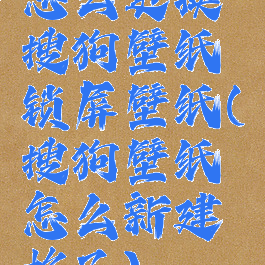 怎么更换
搜狗壁纸
锁屏壁纸(
搜狗壁纸
怎么新建